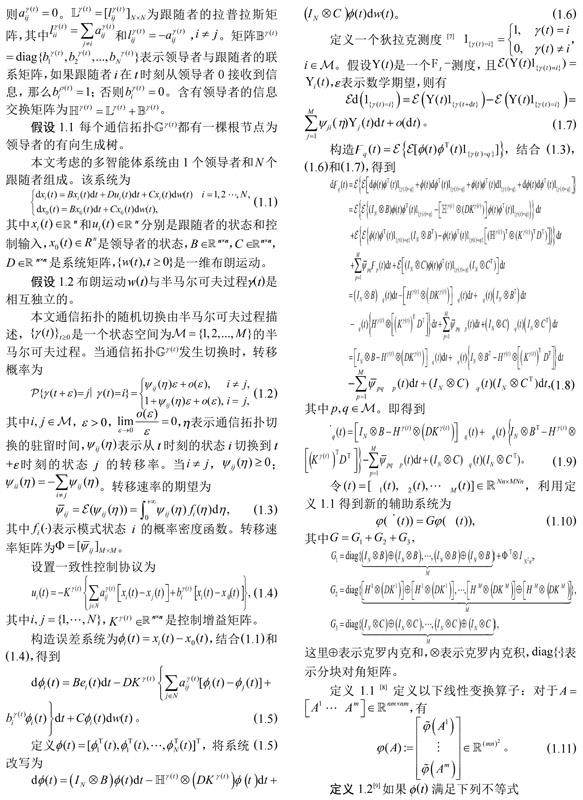 则a_{ij}^{γ(t)}=0。𝕃^{γ(t)}=[l_{ij}^{γ(t)}]_{N×N}为跟随者的拉普拉斯矩
阵,其中l_{ii}^{γ(t)}=∑_{j≠i}a_{ij}^{γ(t)}和l_{ij}^{γ(t)}=-a_{ij}^{γ(t)},i≠j。矩阵𝔹^{γ(t)}
=diag{b_1^{γ(t)},b_2^{γ(t)},...,b_N^{γ(t)}}表示领导者与跟随者的联
系矩阵,如果跟随者i在t时刻从领导者0接收到信
息,那么b_i^{γ(t)}=1;否则b_i^{γ(t)}=0。含有领导者的信息
交换矩阵为ℍ^{γ(t)}=𝕃^{γ(t)}+𝔹^{γ(t)}。
假设 1.1 每个通信拓扑𝔾^{γ(t)}都有一棵根节点为
领导者的有向生成树。
本文考虑的多智能体系统由1个领导者和N个
跟随者组成。该系统为
{dx_i(t)=Bx_i(t)dt+Du_i(t)dt+Cx_i(t)dw(t) i=1,2⋯,N,
dx_0(t)=Bx_0(t)dt+Cx_0(t)dw(t), (1.1)
其中x_i(t)∈ℝ^n和u_i(t)∈ℝ^n分别是跟随者的状态和控
制输入,x_0(t)∈R^n是领导者的状态,B∈ℝ^{n×n},C∈ℝ^{n×n},
D∈ℝ^{n×n}是系统矩阵,{w(t),t≥0}是一维布朗运动。
假设 1.2 布朗运动w(t)与半马尔可夫过程γ(t)是
相互独立的。
本文通信拓扑的随机切换由半马尔可夫过程描
述,{γ(t)}_{t≥0}是一个状态空间为ℳ={1,2,...,M}的半
马尔可夫过程。当通信拓扑𝔾^{γ(t)}发生切换时,转移
概率为
𝒫{γ(t+ε)=j|γ(t)=i}={ψ_{ij}(η)ε+o(ε), i≠j,
1+ψ_{ij}(η)ε+o(ε),i=j, (1.2)
其中i,j∈ℳ,ε>0,lim_{ε→0} o(ε)/ε=0,η表示通信拓扑切
换的驻留时间,ψ_{ij}(η)表示从t时刻的状态i切换到t
+ε时刻的状态 j 的转移率。当i≠j,ψ_{ij}(η)≥0;
ψ_{ii}(η)=-∑_{i≠j}ψ_{ij}(η)。转移速率的期望为
ψ̄_{ij}=ℰ(ψ_{ij}(η))=∫_0^{+∞}ψ_{ij}(η)f_i(η)dη, (1.3)
其中f_i(·)表示模式状态 i 的概率密度函数。转移速
率矩阵为Φ=[ψ̄_{ij}]_{M×M}。
设置一致性控制协议为
u_i(t)=-K^{γ(t)}{∑_{j∈N}a_{ij}^{γ(t)}[x_i(t)-x_j(t)]+b_i^{γ(t)}[x_i(t)-x_0(t)]}, (1.4)
其中i,j={1,⋯,N},K^{γ(t)}∈ℝ^{n×n}是控制增益矩阵。
构造误差系统为ϕ_i(t)=x_i(t)-x_0(t),结合(1.1)和
(1.4),得到
dϕ_i(t)=Be_i(t)dt-DK^{γ(t)}{∑_{j∈N}a_{ij}^{γ(t)}[ϕ_i(t)-ϕ_j(t)]+
b_i^{γ(t)}ϕ_i(t)}dt+Cϕ_i(t)dw(t)。 (1.5)
定义ϕ(t)=[ϕ_1^T(t),ϕ_1^T(t),⋯,ϕ_N^T(t)]^T,将系统 (1.5)
改写为
dϕ(t)=(I_N⊗B)ϕ(t)dt-ℍ^{γ(t)}⊗(DK^{γ(t)})ϕ(t)dt+
(I_N⊗C)ϕ(t)dw(t)。 (1.6)
定义一个狄拉克测度 [7] 1_{{γ(t)=i}}={1, γ(t)=i
0, γ(t)≠i,
i∈ℳ。假设Y(t)是一个F_t-测度,且ℰ(Y(t)1_{{γ(t)=i}})=
Y_i(t),ε表示数学期望,则有
ℰd(1_{{γ(t)=i}})=ℰ(Y(t)1_{{γ(t+dt}})-ℰ(Y(t)1_{{γ(t)=i}})=
∑_{j=1}^{M}ψ_{ji}(η)Y_j(t)dt+o(dt)。 (1.7)
构造F_q(t)=ℰ{ℰ[ϕ(t)ϕ^T(t)1_{{γ(t)=q}}]},结合 (1.3),
(1.6)和(1.7),得到
其中p,q∈ℳ。即得到
令(t)=[ _1(t), _2(t),⋯ _M(t)]∈ℝ^{Nn×MNn},利用定
义 1.1 得到新的辅助系统为
φ( ˙(t))=Gφ( (t)), (1.10)
其中G=G_1+G_2+G_3,
G_1=diag{(I_N⊗B)⊕(I_N⊗B),⋯,(I_N⊗B)⊕(I_N⊗B)}+Φ^T⊗I_{N²n²},
G_2=diag{[H^1⊗(DK^1)]⊕[H^1⊗(DK^1)],⋯,[H^M⊗(DK^M)]⊕[H^M⊗(DK^M)]},
G_3=diag{(I_N⊗C)⊕(I_N⊗C),⋯,(I_N⊗C)⊕(I_N⊗C)},
这里⊕表示克罗内克和,⊗表示克罗内克积,diag{·}表
示分块对角矩阵。
定义 1.1 [8] 定义以下线性变换算子:对于A=
[A^1 ⋯ A^m]∈ℝ^{nm×nm},有
φ(A):=[φ̃(A^1) ⋮ φ̃(A^m)]∈ℝ^{(mn)²}。 (1.11)
定义 1.2[9] 如果ϕ(t)满足下列不等式